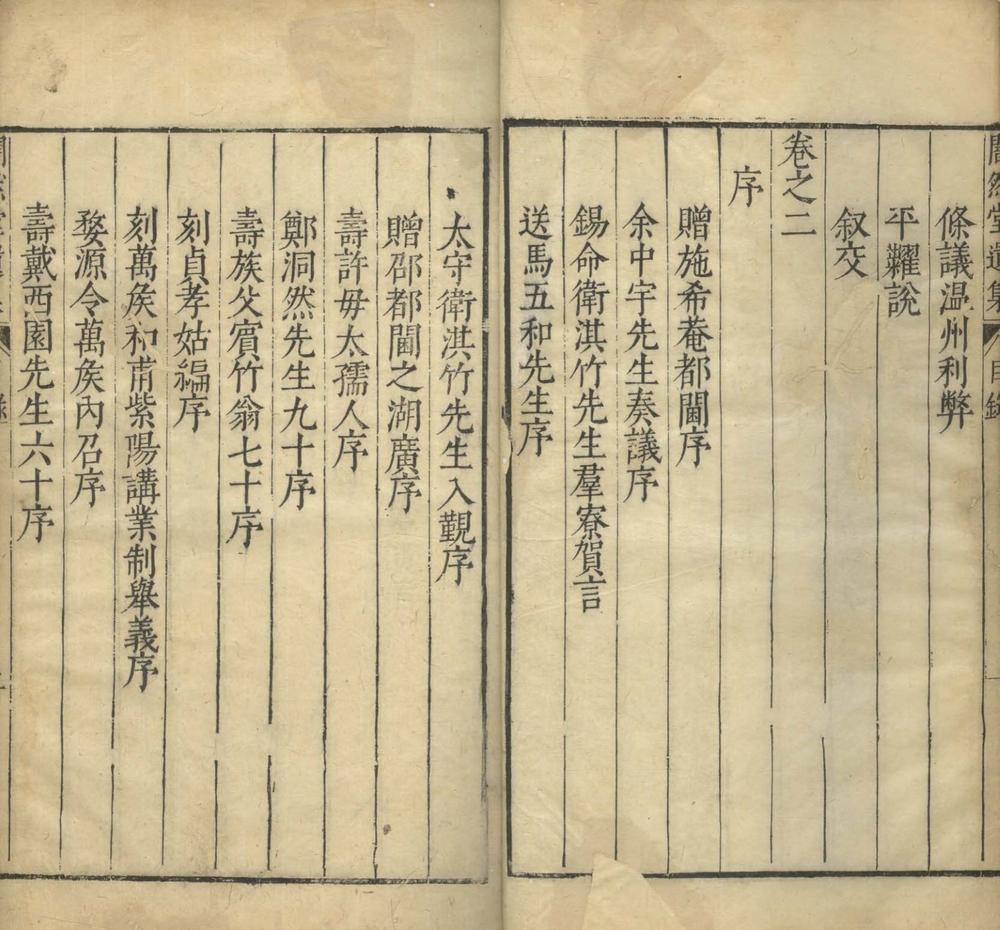 闇然堂遺集 目錄
條議温州利弊
平糶說
叙交
卷之二
序
贈施希菴都閫序
余中宇先生奏議序
錫命衛淇竹先生羣寮賀言
送馬五和先生序
太守衛淇竹先生入覲序
贈邵都閫之湖廣序
壽許母太孺人序
鄭洞然先生九十序
壽族父賓竹翁七十序
刻貞孝姑編序
刻萬矦和甫紫陽講業制舉義序
婺源令萬矦內召序
壽戴西園先生六十序